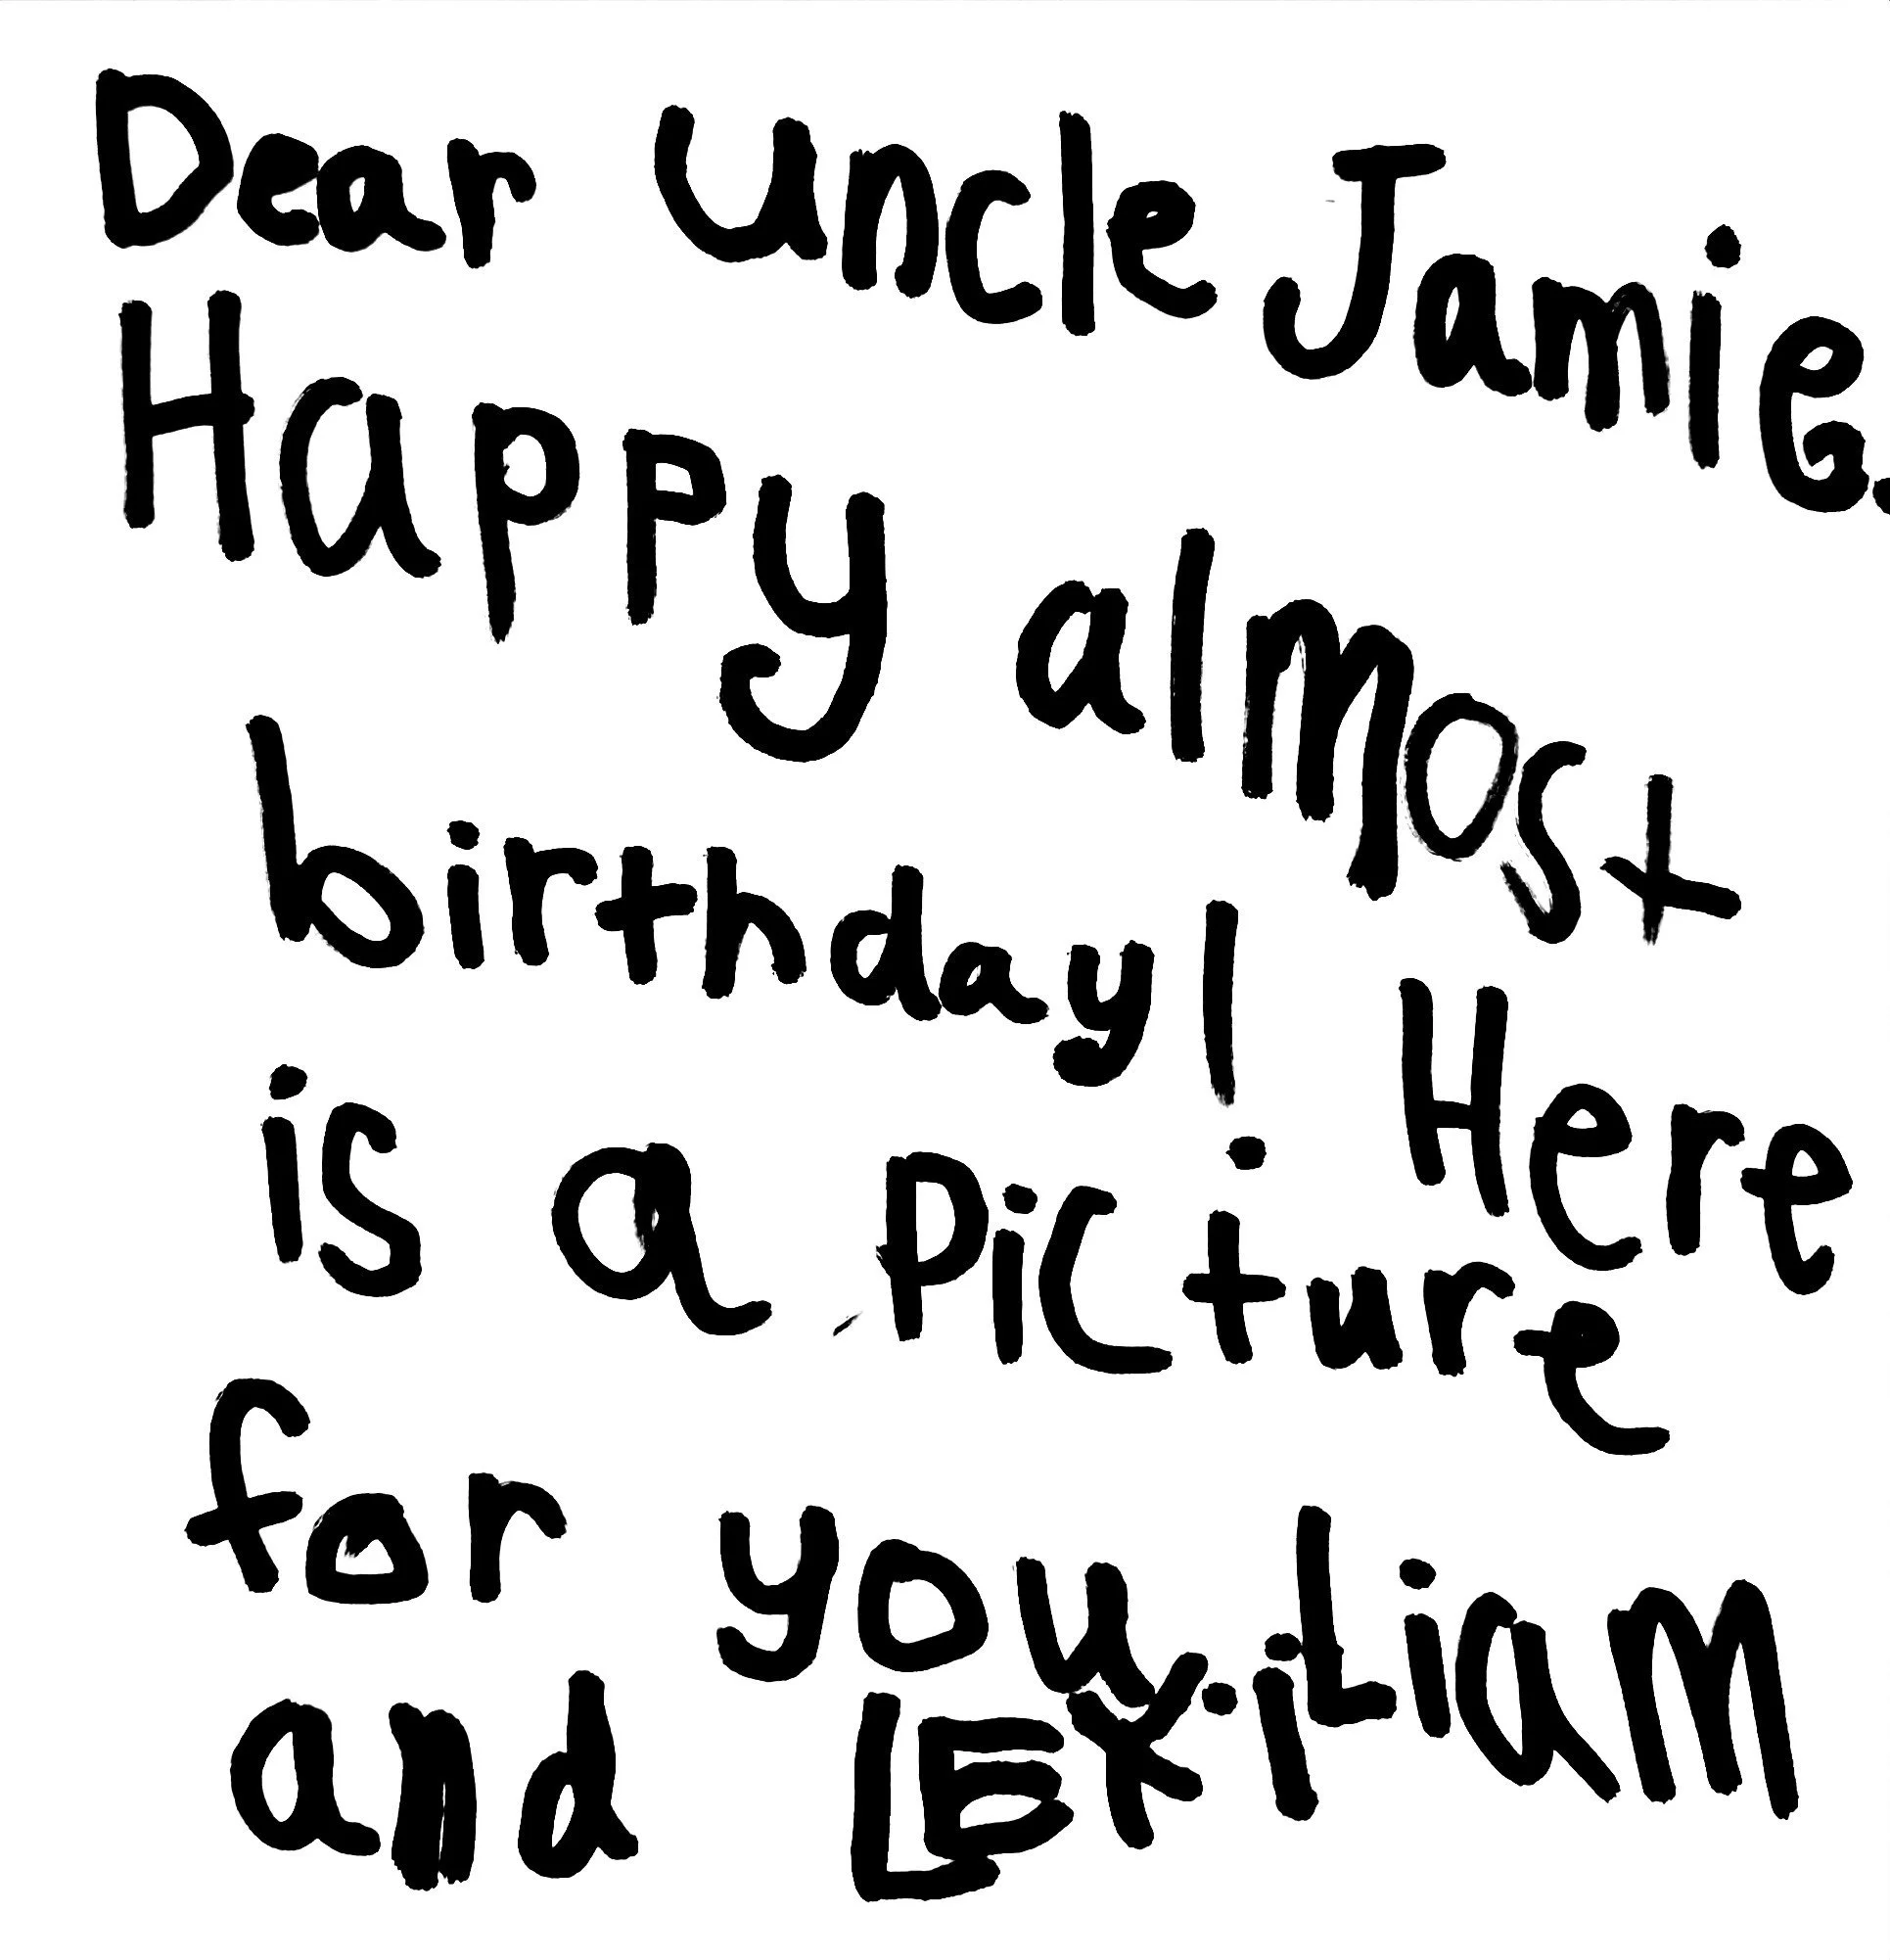 Dear Uncle Jamie.
Happy almost
birthday! Here
is a picture
for you. Liam
and